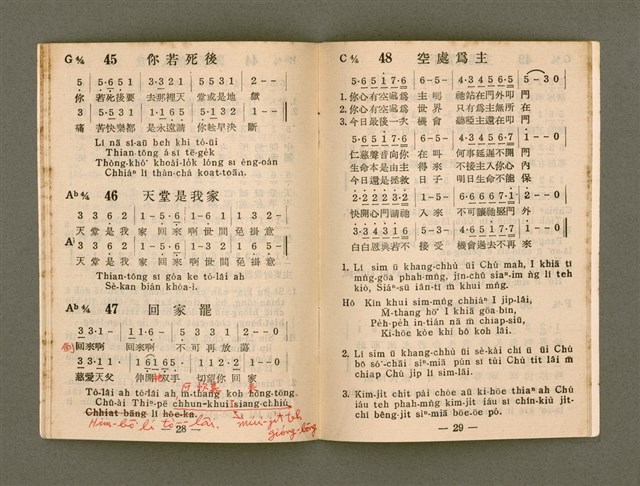 G 4/4 45 你若死後
5 | 5·6 5 1 | 3·3 2 1 | 5 5 3 1 | 2 - - |
你 若死後要 去那裡天 堂或是地 獄
3 | 5·5 3 1 | 1·1 6 5 | 5·1 3 2 | 1 - - ‖
痛 苦快樂都 是永遠請 你趁早決 斷
Lí nā sí-āu beh khì tó-ūi
Thian-tông á-sī tē-ge̍k
Thòng-khó͘ khoài-lo̍k lóng sī éng-oán
Chhiáⁿ lí thàn-chá koat-toān.
Ab 4/4 46 天堂是我家
3 3 6 2 | 1·5·6 | 1·6 1 | 1 3 2 - |
天堂是我 家 回來啊世間 免掛意
3 3 6 2 | 1·5·6 | 1·3 2 | 1 6 5 - ‖
天堂是我 家 回來啊世間 免掛意
Thian-tông sī góa ke tò-lâi ah
Sè-kan bián khòa-ì.
Ab 4/4 47 回家罷
3 3·1 - | 1 1·6 - | 5 3 3 1 | 2 - - 0 |
回來啊 回來啊 不可再放蕩
3 3·1 1· | 1 6 1 6 5· | 1 1 2·2 | 1 - - 0 ‖
慈愛天父 伸開雙手 切望你回家
Tò-lâi ah tò-lâi ah, m̄-thang koh hòng-tōng.
Chû-ài Thiⁿ-pē chhun-khui siang-chhiú,
Chhiat-bāng lí hôe-ka.
— 28 —
C 4/4 48 空處爲主
5·6 5 1 7·6 | 6 - 5 - | 4·3 4 5 6·5 | 5 - 3 0 |
1. 你心有空處爲 主嗎 祂站在門外叩 門
2. 你心有空處爲 世界 只有爲主無所 在
3. 今日最後一次 機會 聽啞主還在叩 門
5·6 5 1 7·6 | 6 - 5 - | 4·3 4 5 6·7 | 1 - - 0 |
仁慈聲音向你 在叫 何事延遲不開 門
生命本是由主 得來 不接主入你心 內
今日還是拯救 日子 明日生命不能 保
2·2 2 2 3·2 | 1 - 5 - | 6·6 6 6 7·6 | 5 - - 0 |
快開心門請祂 入來 不可讓祂竪門 外
3·3 4 3 1 6 | 5 - 1 - | 4·6 5 1 7·1 | 1 - - 0 ‖
白白恩典若不 接受 機會過去不再 來
1. Lí sim ū khang-chhù ūi Chú mah, I khiā tī
mn̂g-góa phah-mn̂g, jîn-chû siaⁿ-im ǹg lí teh
kiò, Siáⁿ-sū iân-tî m̄ khui mn̂g.
Hô Kín khui sim-mn̂g chhiáⁿ I ji̍p-lâi,
M-thang hō͘ I khiā góa-bīn,
Pe̍h-pe̍h in-tián nā m̄ chiap-siū,
Ki-hōe kòe khì bô koh lâi.
2. Lí sim ū khang-chhù ūi sè-kài chí ū ūi Chú
bô só͘-chāi sìⁿ-miā pún sī tùi Chú tit lâi m̄
chiap Chú ji̍p lí sim-lāi.
3. Kim-ji̍t chit pái chòe āu ki-hōe thiaⁿ ah Chú
iáu teh phah-mn̂g kim-ji̍t iáu sī chín-kiù ji̍t-
chí bêng-ji̍t sìⁿ-miā bōe-ōe pó.
— 29 —